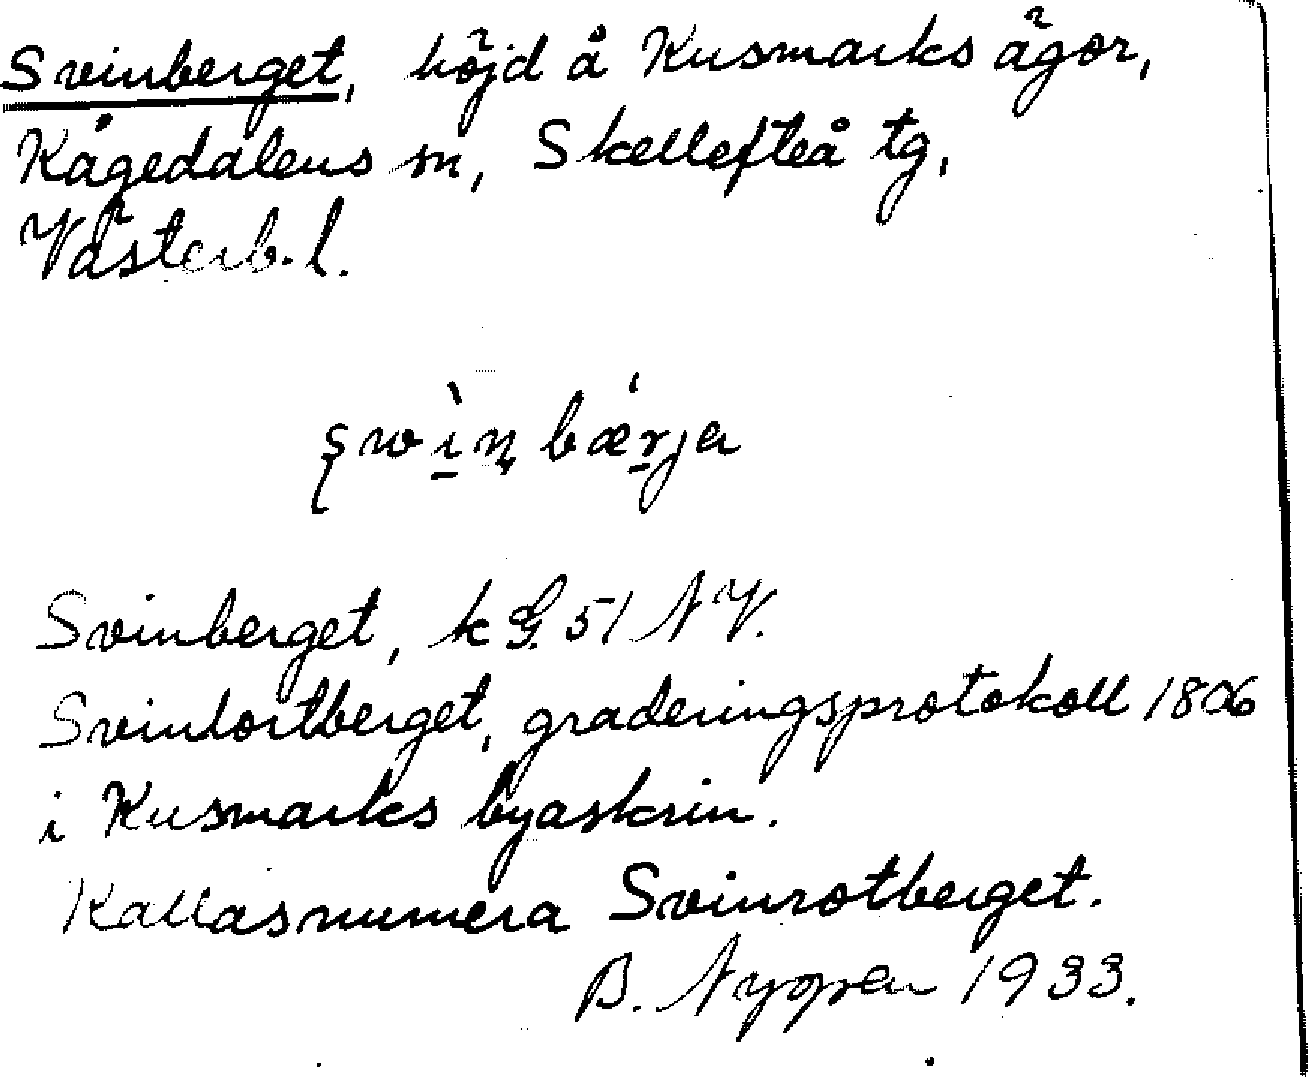 Svinberget, höjd å Kusmarks ägor,
Kågedalens sn, Skellefteå tg,
Västerb. l.
swìn bǽrja
Svinberget, k G. 51 NV.
Svinlortberget, graderingsprotokoll 1806
i Kusmarks byaskrin.
Kallas numera Svinrotberget.
B. Nygren 1933.